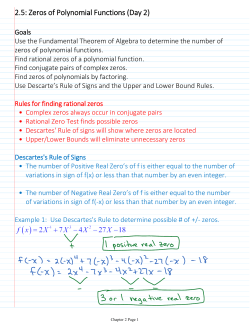 2.5: Zeros of Polynomial Functions (Day 2)
Goals
Use the Fundamental Theorem of Algebra to determine the number of
zeros of polynomial functions.
Find rational zeros of a polynomial function.
Find conjugate pairs of complex zeros.
Find zeros of polynomials by factoring.
Use Descarte's Rule of Signs and the Upper and Lower Bound Rules.
Rules for finding rational zeros
• Complex zeros always occur in conjugate pairs
• Rational Zero Test finds possible zeros
• Descartes' Rule of signs will show where zeros are located
• Upper/Lower Bounds will eliminate unnecessary zeros
Descartes's Rule of Signs
• The number of Positive Real Zero's of f is either equal to the number of
variations in sign of f(x) or less than that number by an even integer.
• The number of Negative Real Zero's of f is either equal to the number
of variations in sign of f(-x) or less than that number by an even integer.
Example 1: Use Descartes's Rule to determine possible # of +/- zeros.
f(x) = 2X⁴ + 7X³ - 4X² - 27X - 18
+ -
1 positive real zero
f(-x) = 2(-x)⁴ + 7(-x)³ - 4(-x)² - 27(-x) - 18
f(-x) = 2x⁴ - 7x³ - 4x² + 27x - 18
3 or 1 negative real zero
Chapter 2 Page 1